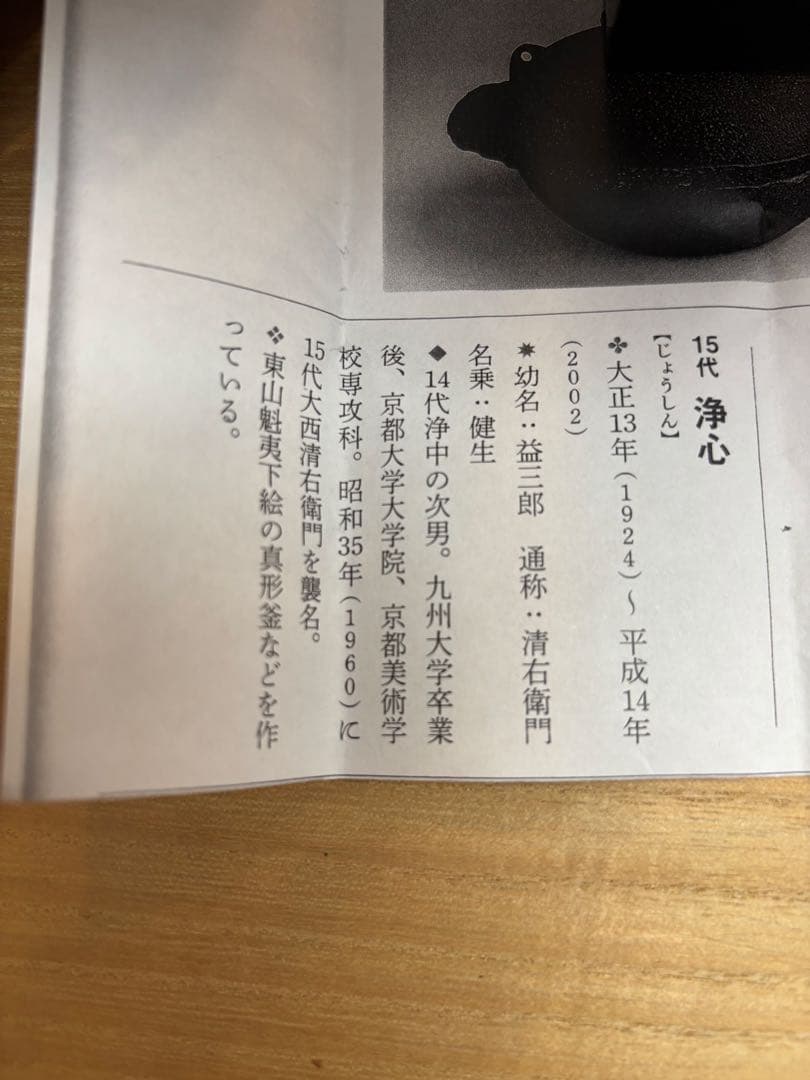 15代 浄心
【じょうしん】
✤大正13年(1924)〜平成14年
(2002)
✷幼名：益三郎　通称：清右衛門
名乗：健生
◆14代浄中の次男。九州大学卒業
後、京都大学大学院、京都美術学
校専攻科。昭和35年(1960)に
15代大西清右衛門を襲名。
❖東山魁夷下絵の真形釜などを作
っている。